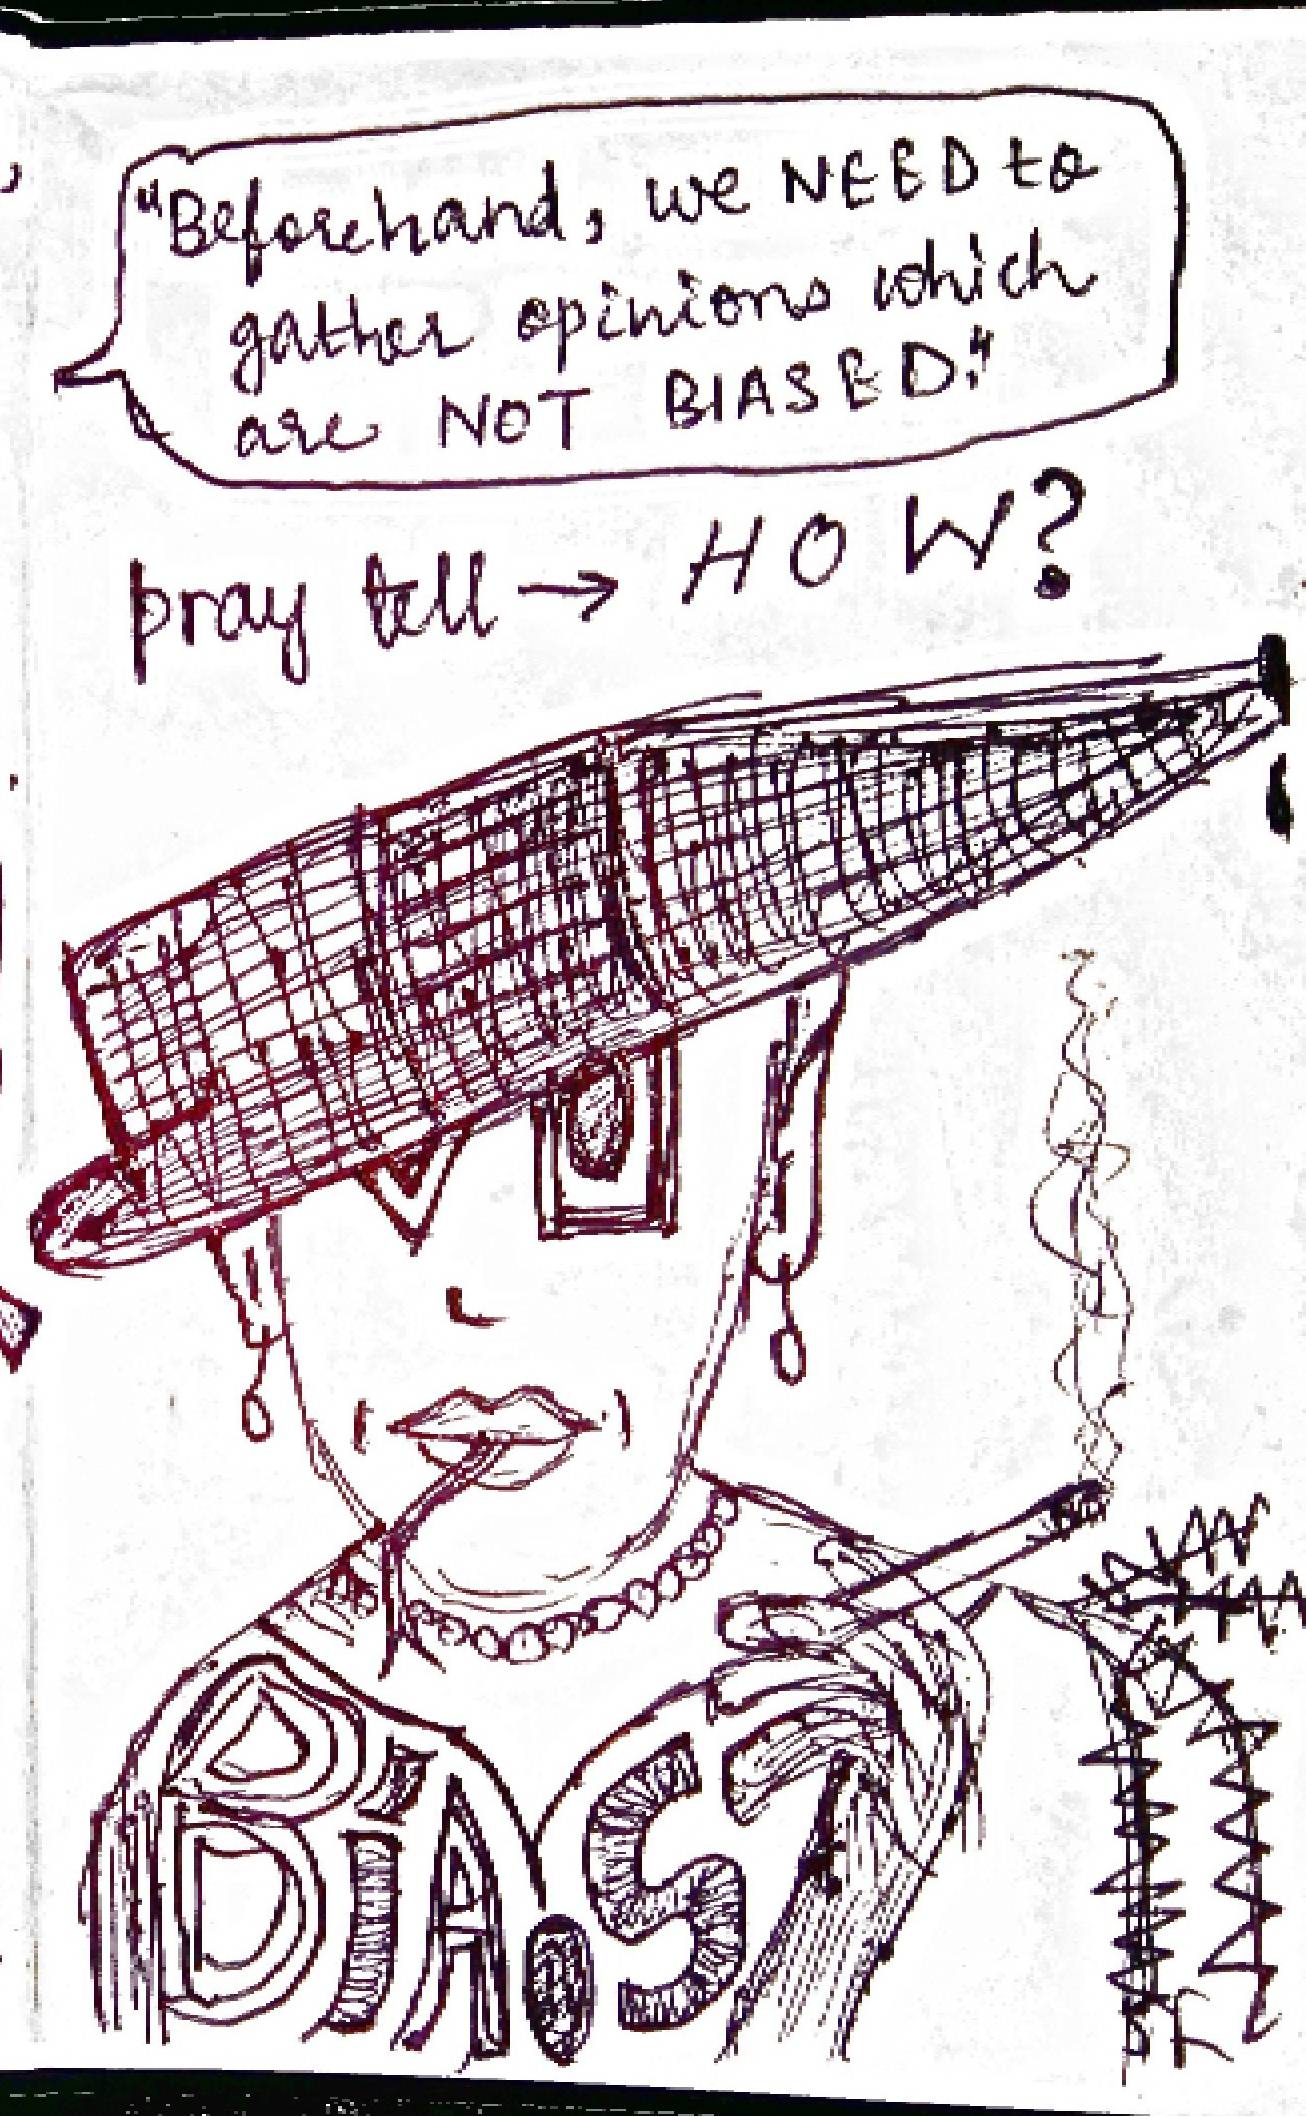 "Beforehand, we NEED to
gather opinions which
are NOT BIASED."
pray tell → HOW?
BiA.S